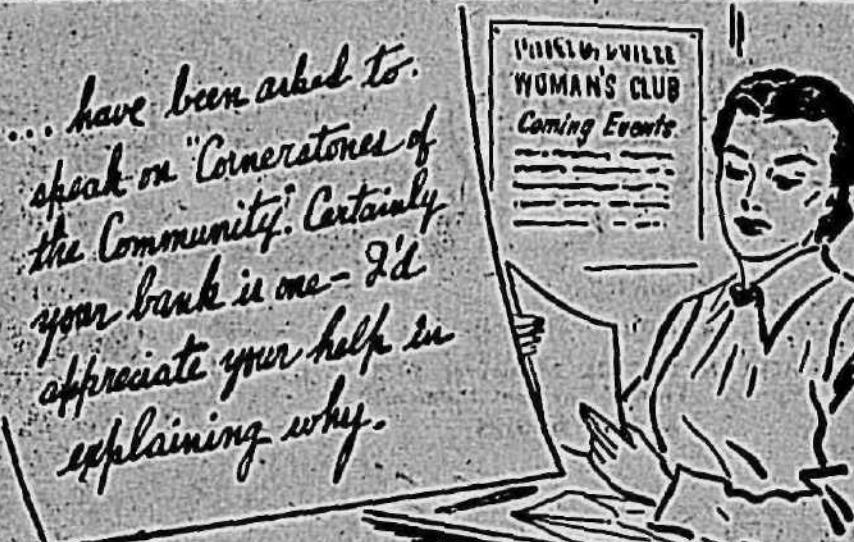 ... have been asked to
speak on "Cornerstones of
the Community". Certainly
your bank is one - I'd
appreciate your help in
explaining why.
WOMAN'S CLUB
Coming Events